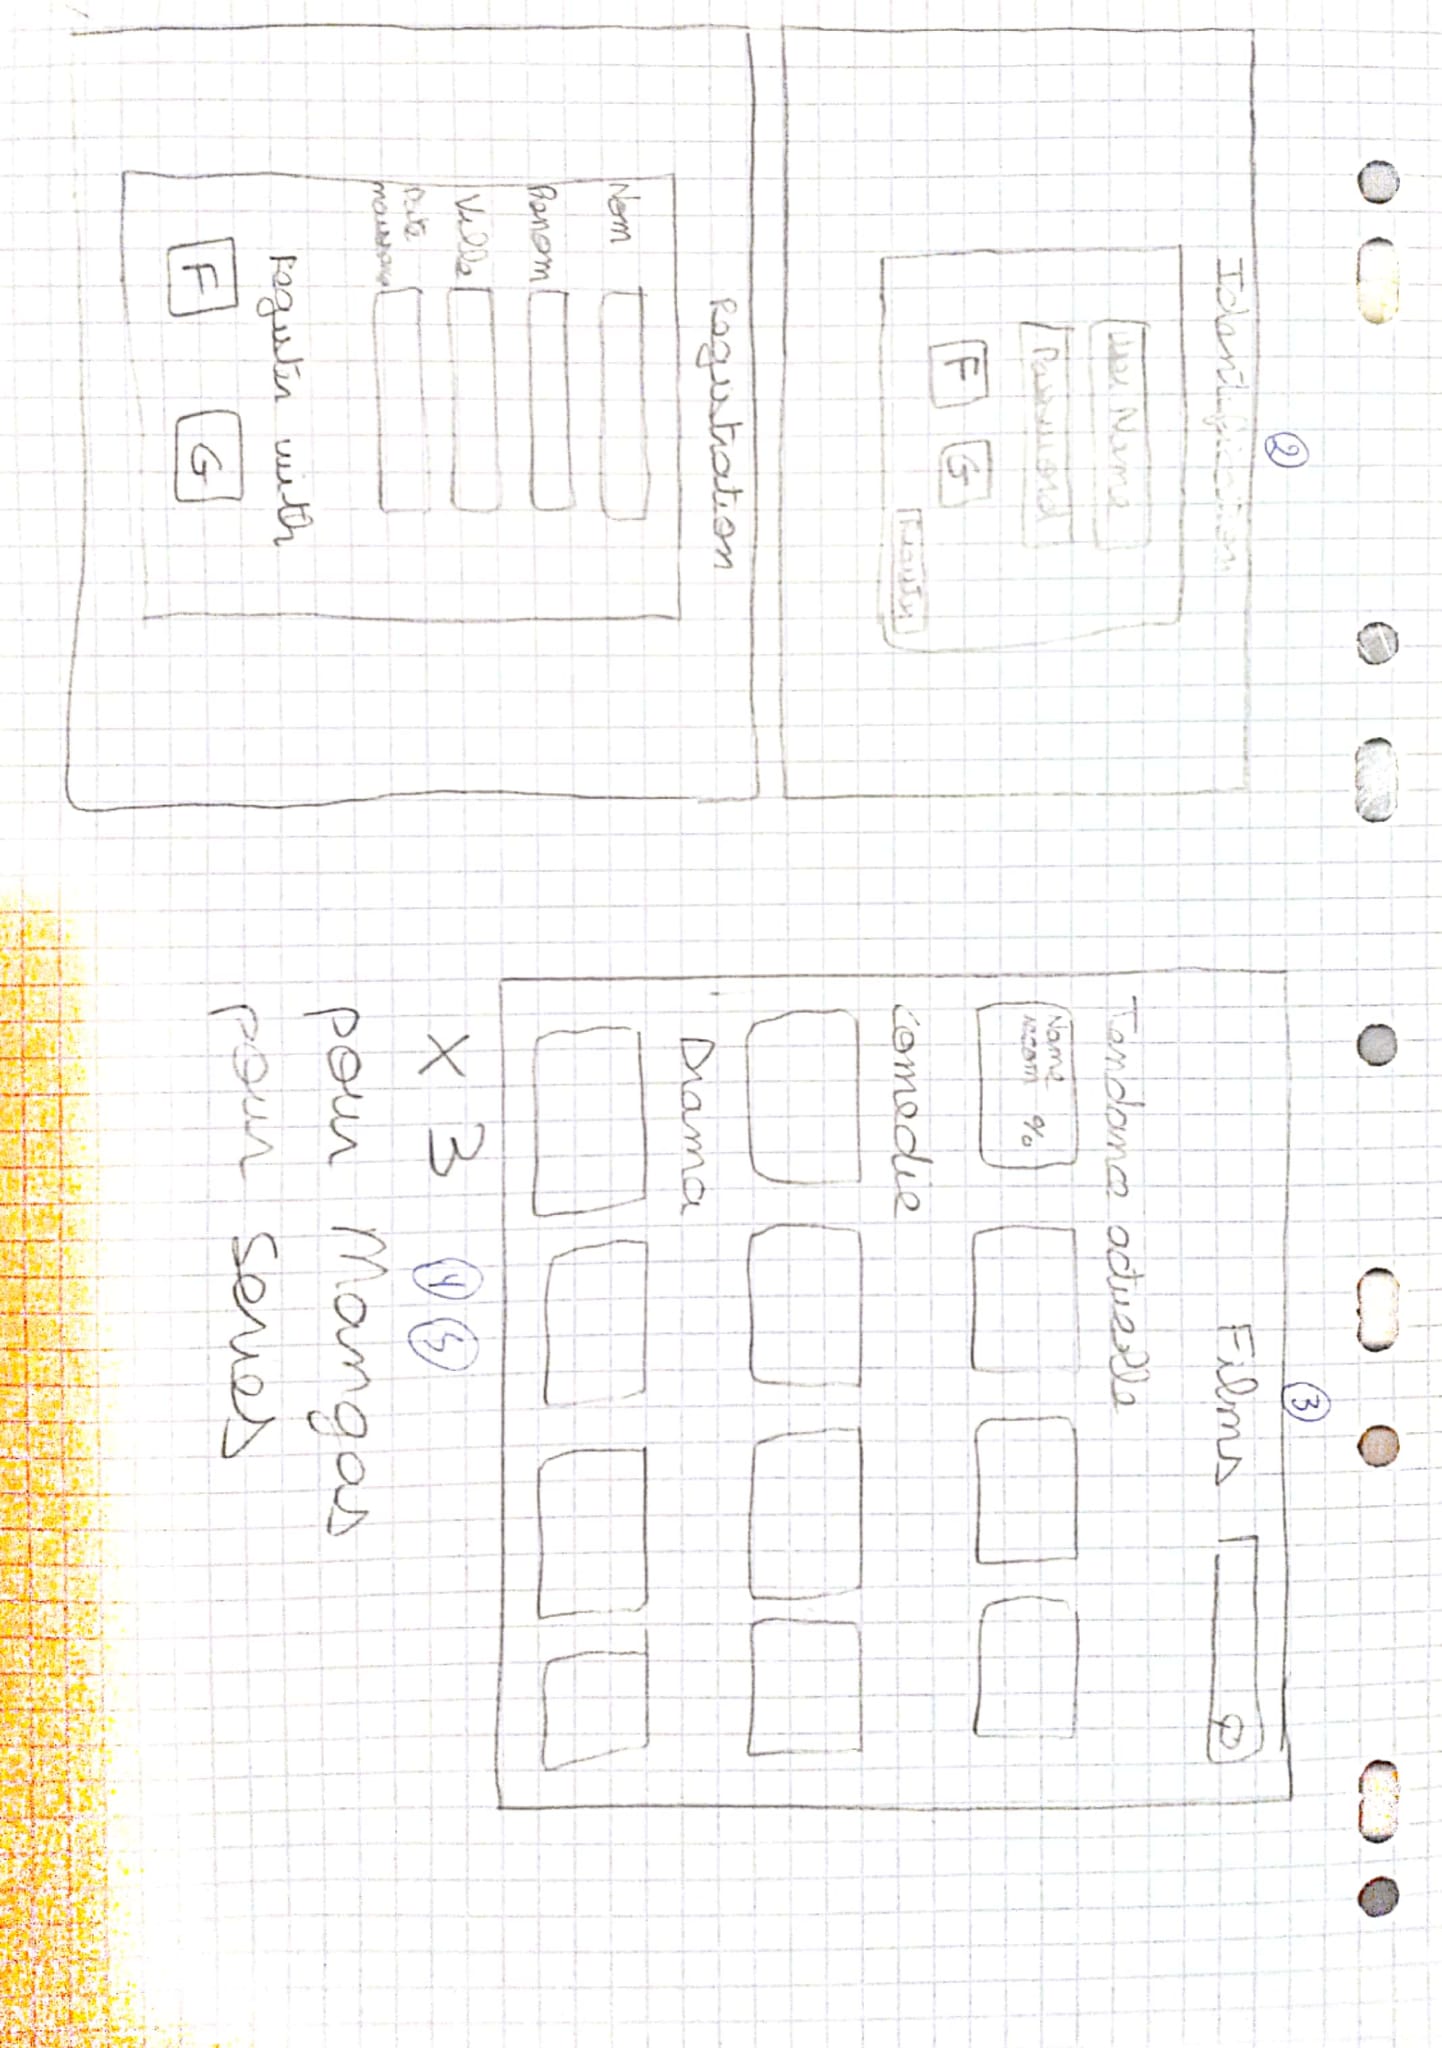 ②
Identification
User Name
Password
F G
Registration
Nom
Prenom
Ville
Date
Register with
F G
③
Films
Tendance actuelle
Name
%
Comedie
Drama
X 3 ④ ⑤
pour Mangas
pour Series